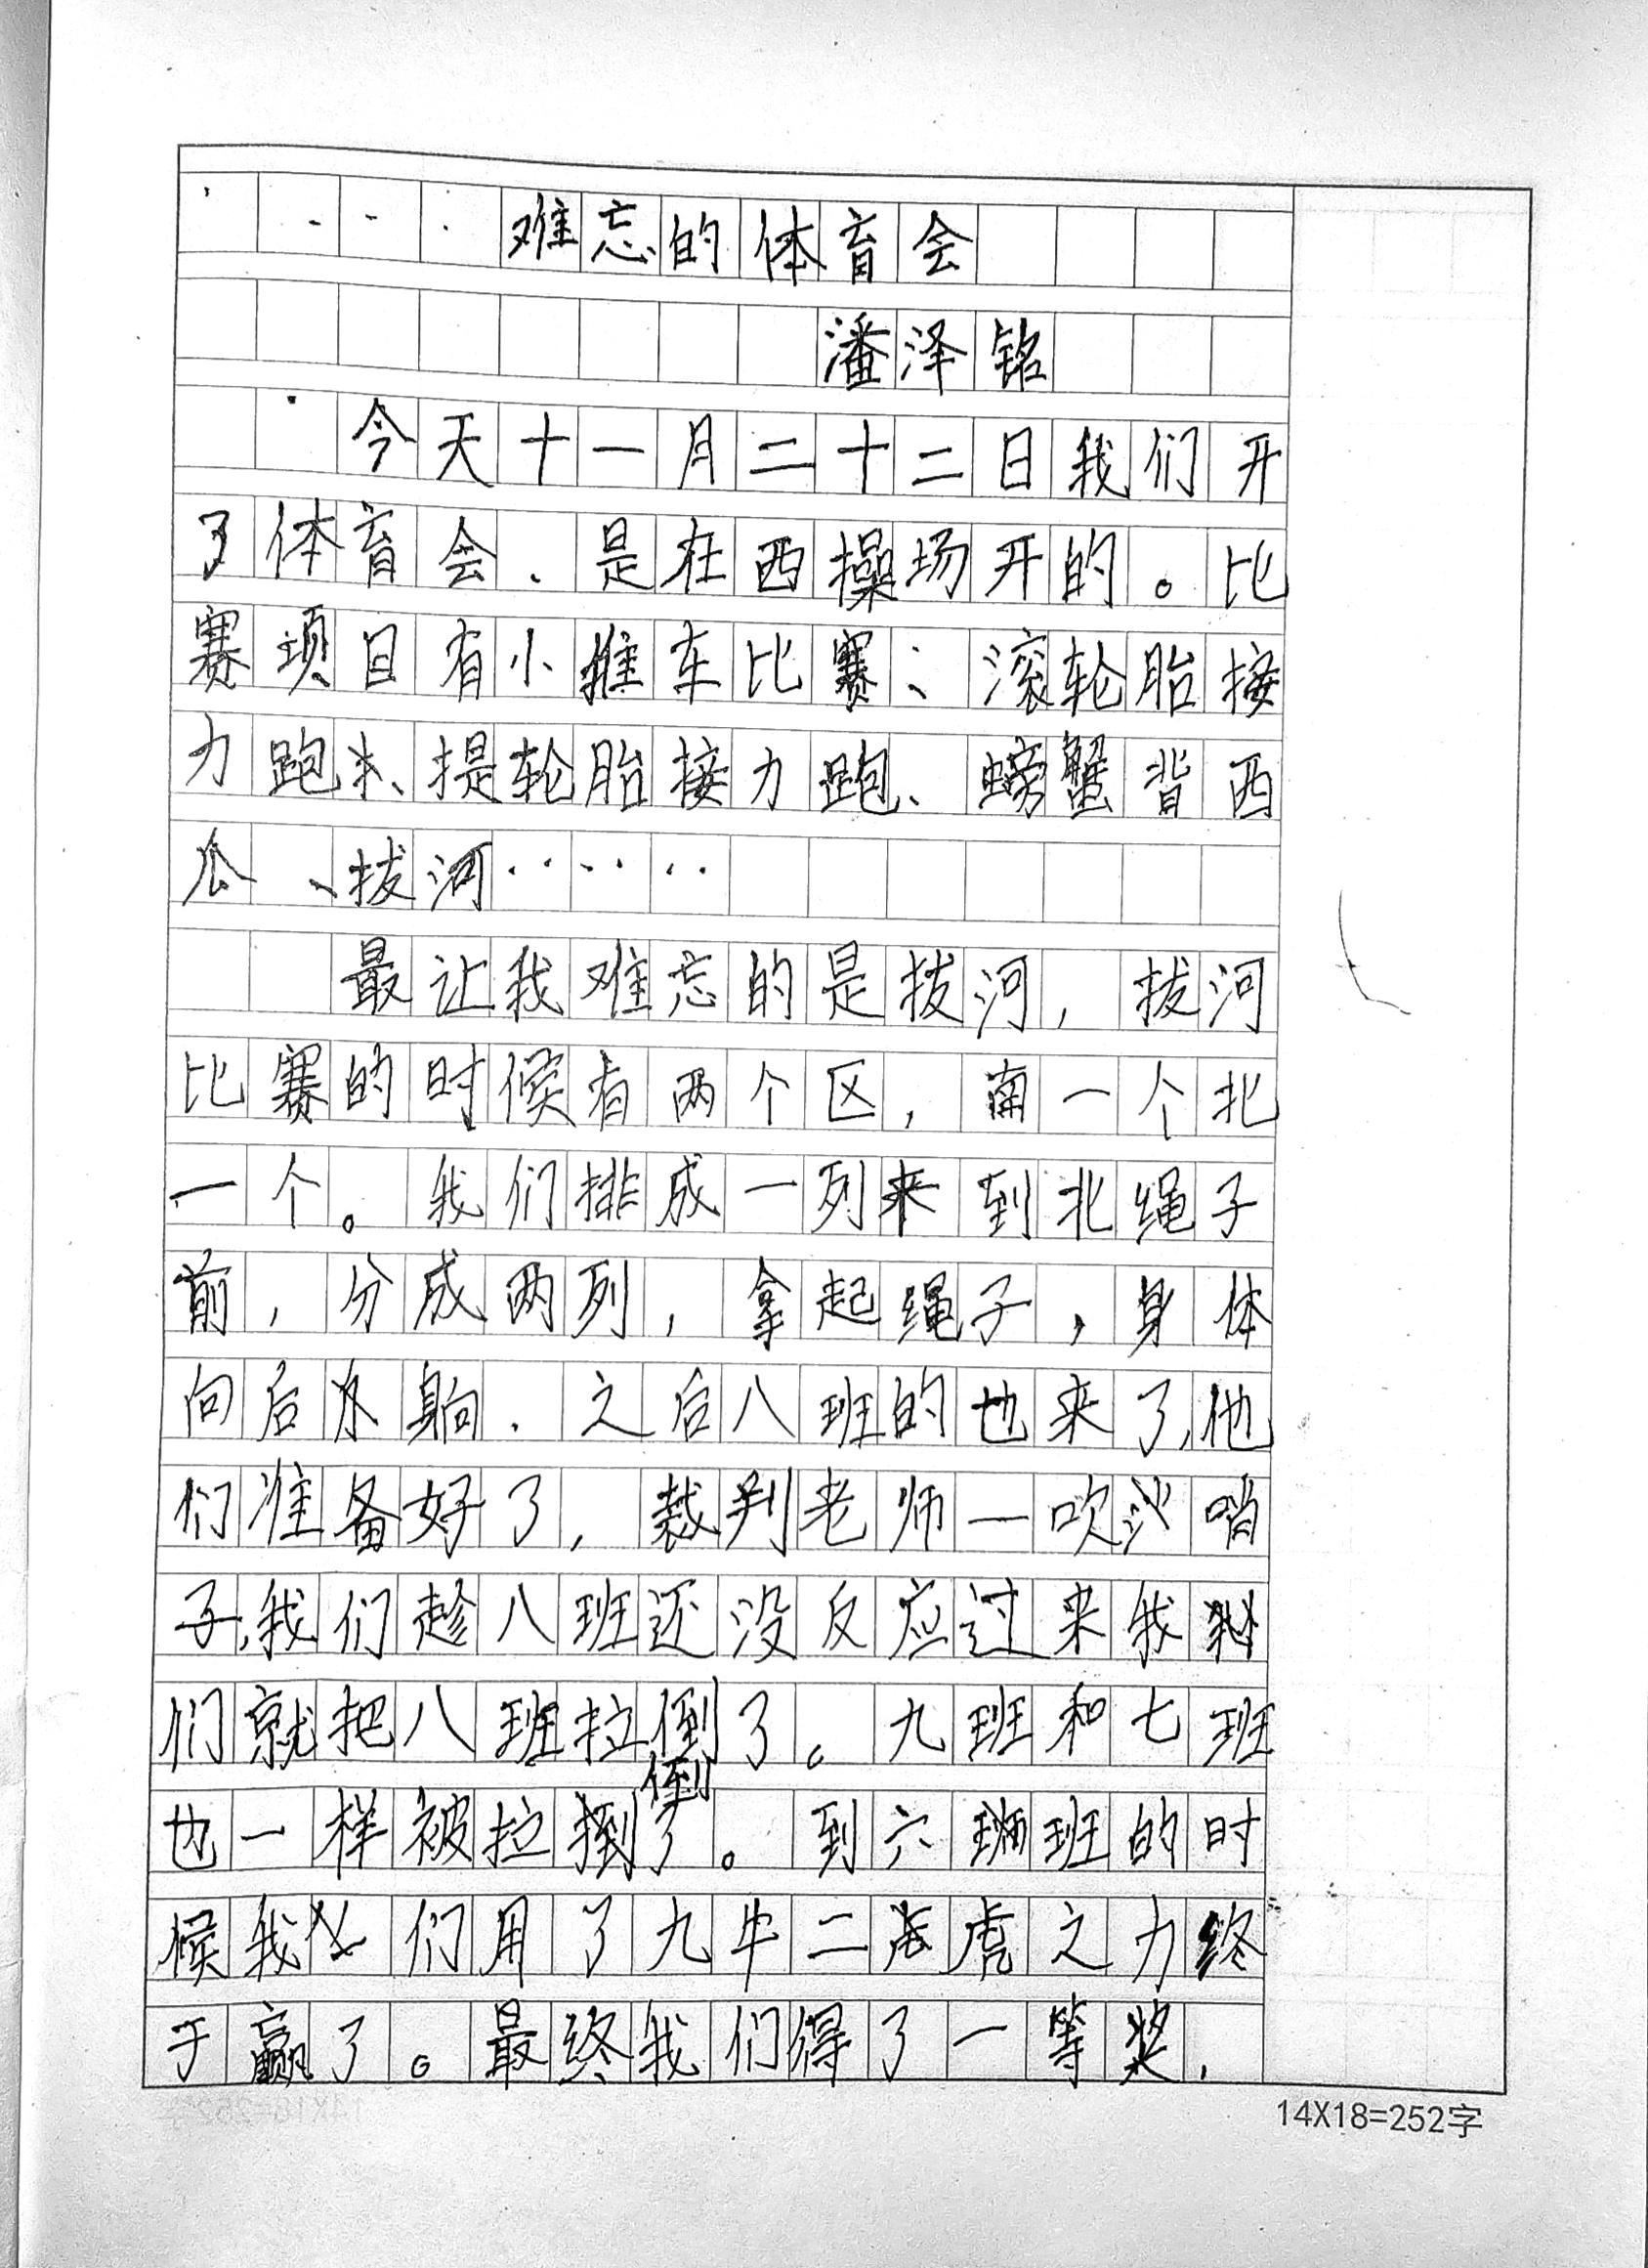 难忘的体育会
潘泽铭
今天十一月二十二日我们开
了体育会.是在西操场开的。比
赛项目有小推车比赛、滚轮胎接
力跑、提轮胎接力跑、螃蟹背西
瓜、拔河······
最让我难忘的是拔河，拔河
比赛的时候有两个区，南一个北
一个。我们排成一列来到北绳子
前，分成两列，拿起绳子，身体
向后躺.之后八班的也来了,他
们准备好了，裁判老师一吹哨
子,我们趁八班还没反应过来我
们就把八班拉倒了。九班和七班
倒
也一样被拉了。到六班的时
候我们用了九牛二虎之力终
于赢了。最终我们得了一等奖.
14X18=252字